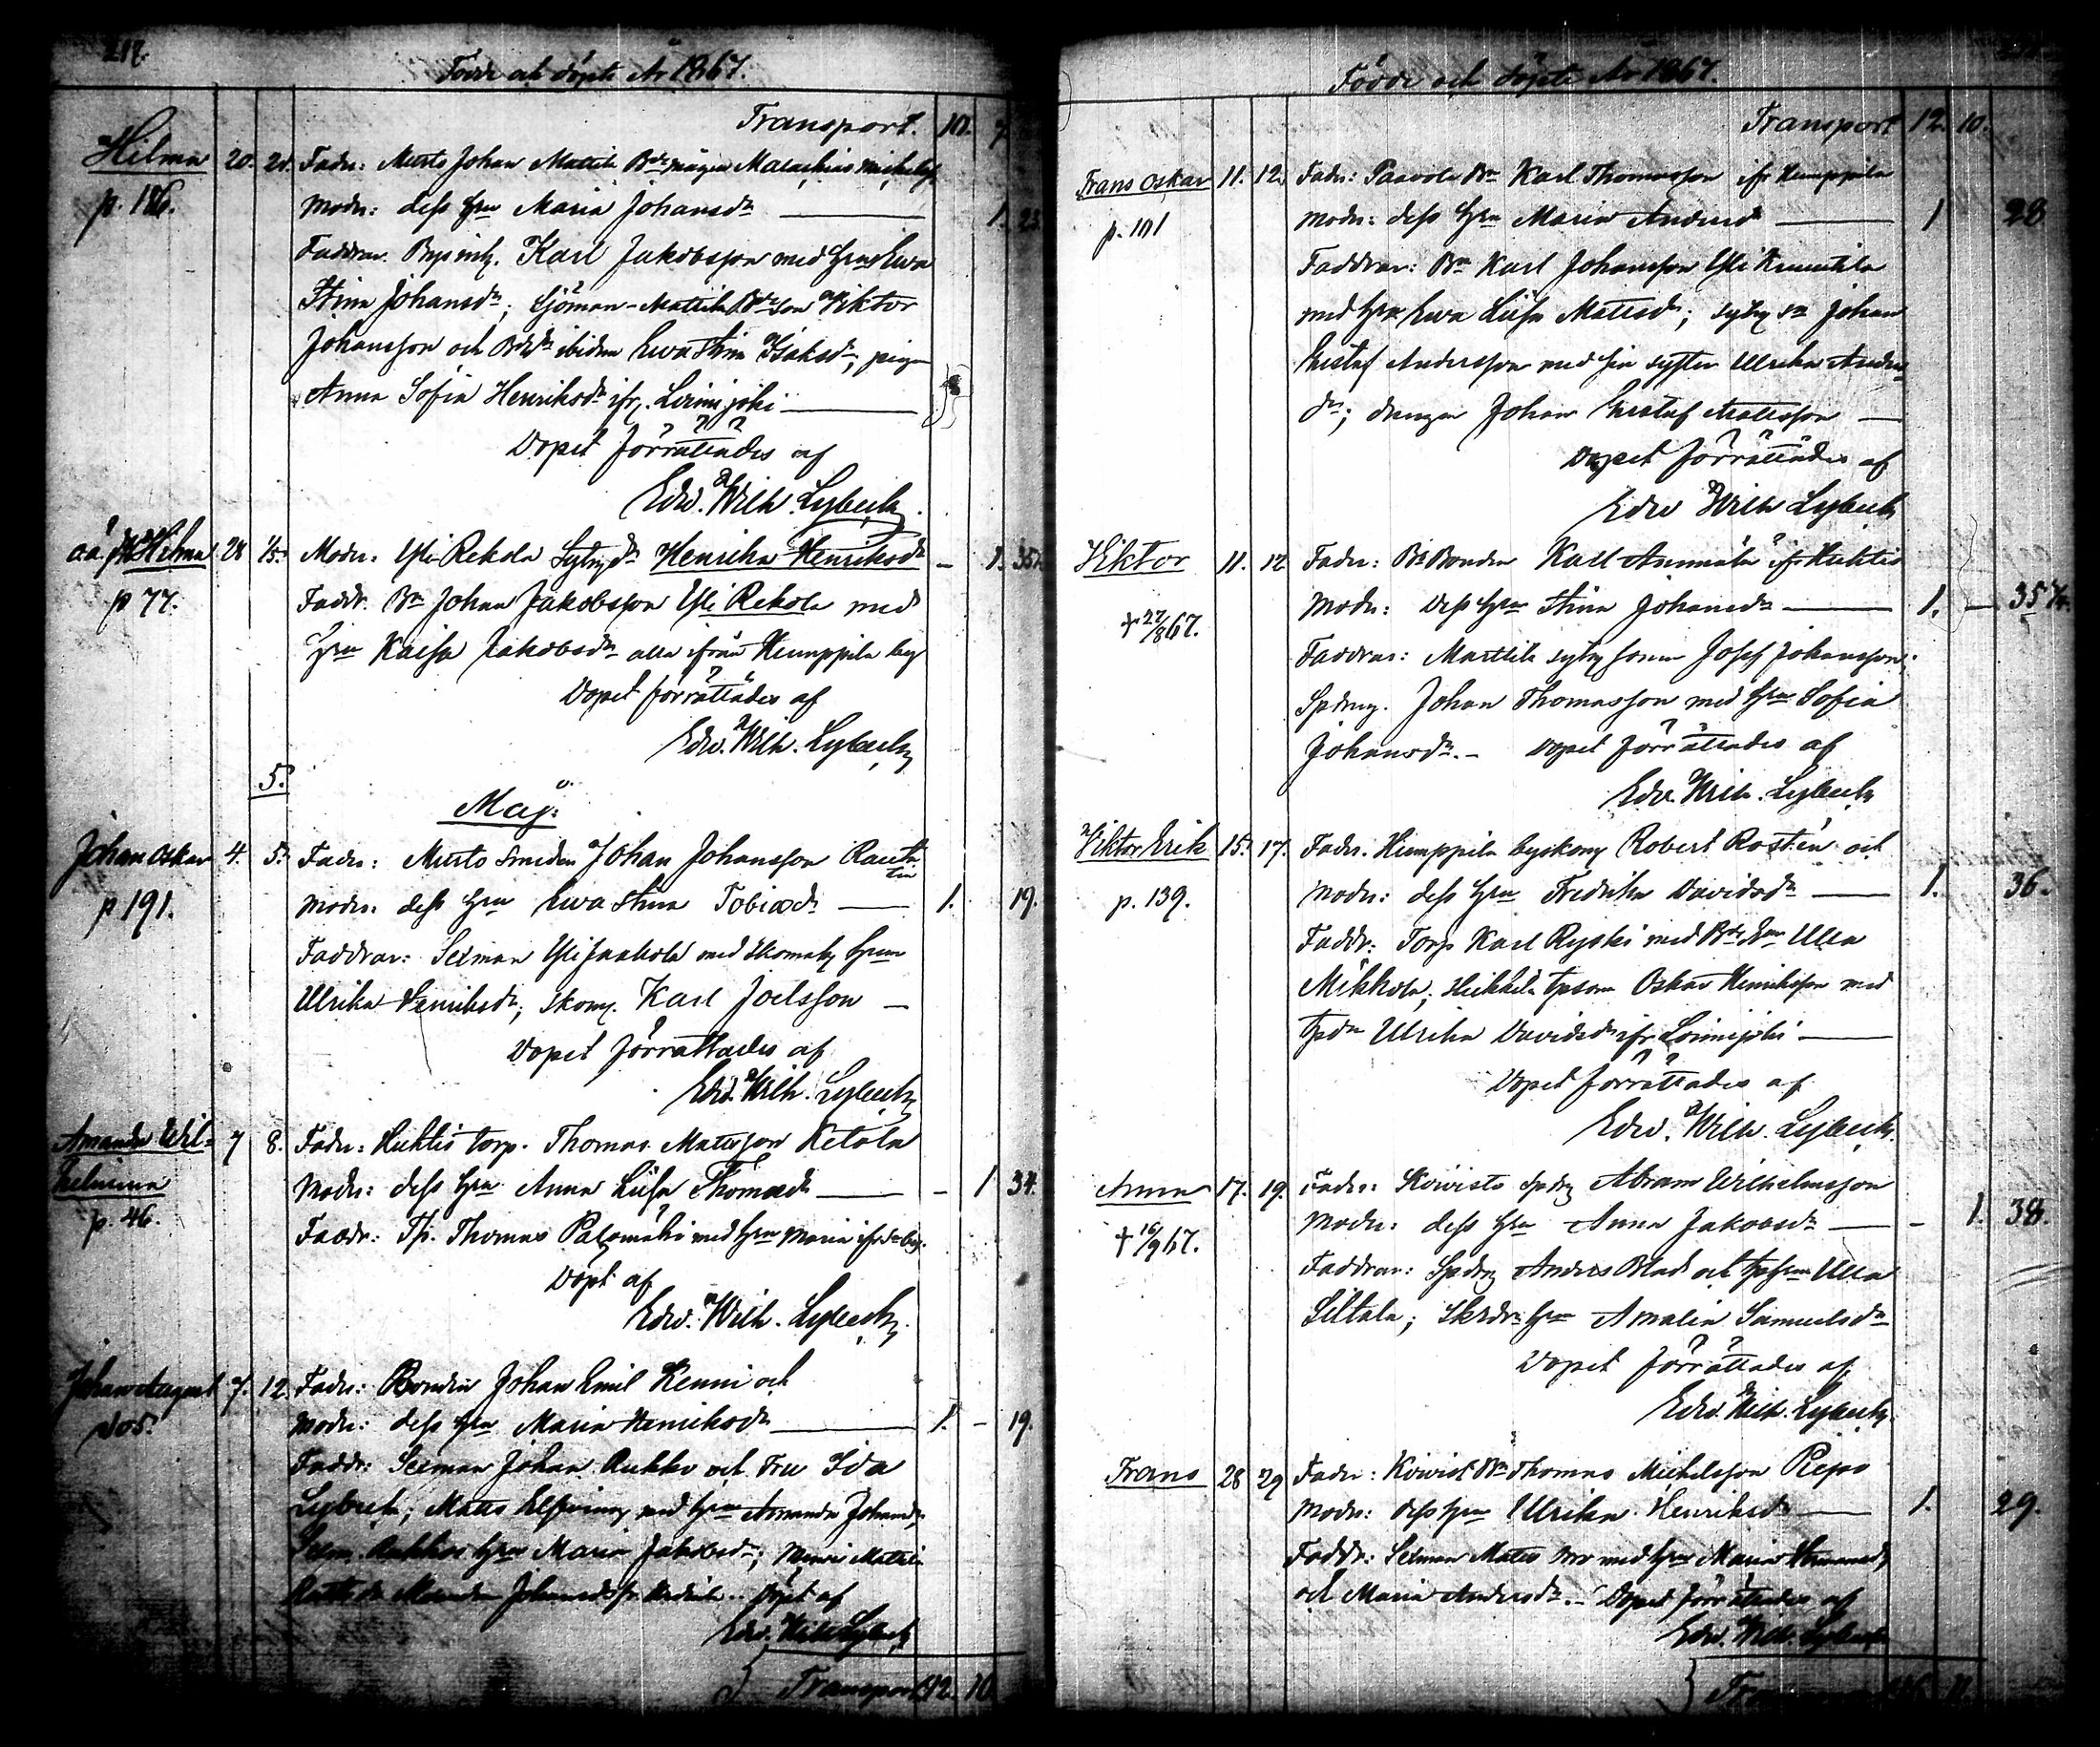 212.
Födde och döpte År 1867.
Transport. 10. 7
Hilma 20. 21. Fadr: Murto Johan Mattila Bde mågen Malachias Michelss.
p. 186. Modr: dess hru Maria Johansdr 1. 23.
Faddrar. Karl Jakobsson med hru Ewa
Stina Johansdr; Sjöman Mattila Bdeson Viktor
Johansson och ibidem Ewa Stina Isaksdr; pigan
Anna Sofia Henriksdr ifr. Loimijoki
Dopet förrättades af
Edw. Wilh. Lybeck.
o.ä. Hilma 28 1/5. Modr: Yli Rekola Sytngdr Henrika Henriksdr - 1. 35
p 77. Faddr. Bn Johan Jakobsson Yli Rekola med
hru Kaisa Jakobsdr alla ifrån Humppila by
Dopet förrättades af
Edw. Wilh. Lybeck
5.
Maj:
Johan Oskar 4. 5. Fadr: Murto Smeden Johan Johansson Rautatin
p 191. Modr. dess hru Ewa Stina Tobiasdr 1. 19.
Faddrar: Sexman Yli Jaakola med Skomak. hrun
Ulrika Henriksdr; Skom. Karl Joelsson
Dopet förrättades af
Edw. Wilh. Lybeck
Amanda Wil- 7 8. Fadr: Huhtis torp. Thomas Matsson Ketola
helmina Modr: dess hru Anna Liisa Thomasdr - 1 34.
p. 46. Faddr: Tp. Thomas Palomäki med hru Maria ifr. by.
Döpt af
Edw. Wilh. Lybeck.
Johan August 7. 12. Fadr: Bonden Johan Emil Kenni och
Modr: dess hru Maria Henriksdr 1. - 19.
Faddr: Sexman Johan Rukko och Fru Ida
Lybeck; Matts Elfving med hru Amanda Johansdr
Sexm. Rukkos hru Maria Jakobsdr;
Döpt af
Edw. Wilh. Lybeck
Transport 12. 10
Födde och döpte År 1867.
Transport 12. 10.
Frans Oskar 11. 12. Fadr: Paavola Bn Karl Thomasson ifr Humppila
p. 101 Modr: dess hru Maria Andersdr 1 28
Faddrar: Bn Karl Johansson Yli Krunttila
med hru Ewa Liisa Matsdr; Sytng sn Johan
Gustaf Andersson med sin syster Ulrika Anders
dr; drengen Johan Gustaf Mattsson
Dopet förrättades af
Edw Wilh Lybeck
Viktor 11. 12 Fadr: Bonden Karl Anumäla ifr Huhtis
† 27/8 67. Modr: dess hru Stina Johansdr 1. - 35
Faddrar: Marttila sytng sonen Josef Johansson;
Spdrng. Johan Thomasson med hru Sofia
Johansdr. - Dopet förrättades af
Edw. Wilh. Lybeck
Viktor Erik 15. 17. Fadr. Humppila byskom Robert Rostén och
p. 139. Modr: dess hru Fredrika Davidsdr 1. 36.
Faddr: Torp Karl Ryski med Bde hru Ulla
Mikkola; Heikkilä tpsonen Oskar Henriksson med
tpdr Ulrika Davidsdr ifr Loimijoki
Dopet förrättades af
Edw. Wilh. Lybeck.
Anna 17. 19. Fadr: Koivisto Spdrg Abram Wilhelmsson
† 16/9 67. Modr: dess hru Anna Jakobsdr - 1. 38.
Faddrar: Spdrg Anders Blad och tphrun Ulla
Siltala; Skrdr. hru Amalia Samuelsdr
Dopet förrättades af
Edw. Wilh. Lybeck.
Frans 28 29 Fadr: Koivist Bn Thomas Michelsson Repo
Modr: dess hru Ulrika Henriksdr 1. 29.
Faddr: Sexman Matts med hru Maria Hermansdr,
och Maria Andersdr. - Dopet förrättades af
Edw. Wilh. Lybeck